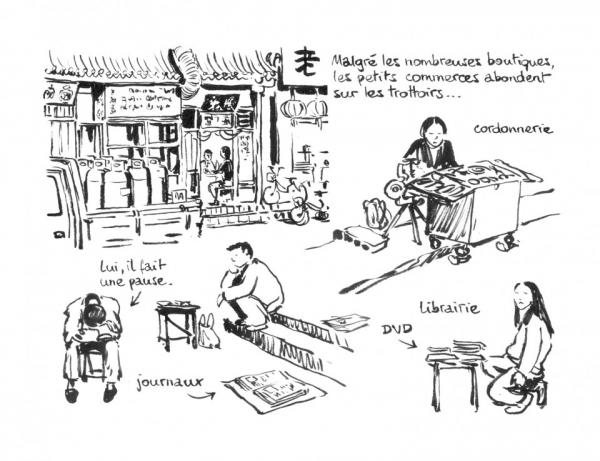 老
Malgré les nombreuses boutiques,
les petits commerces abondent
sur les trottoirs...
cordonnerie
Lui, il fait
une pause.
journaux
librairie
DVD